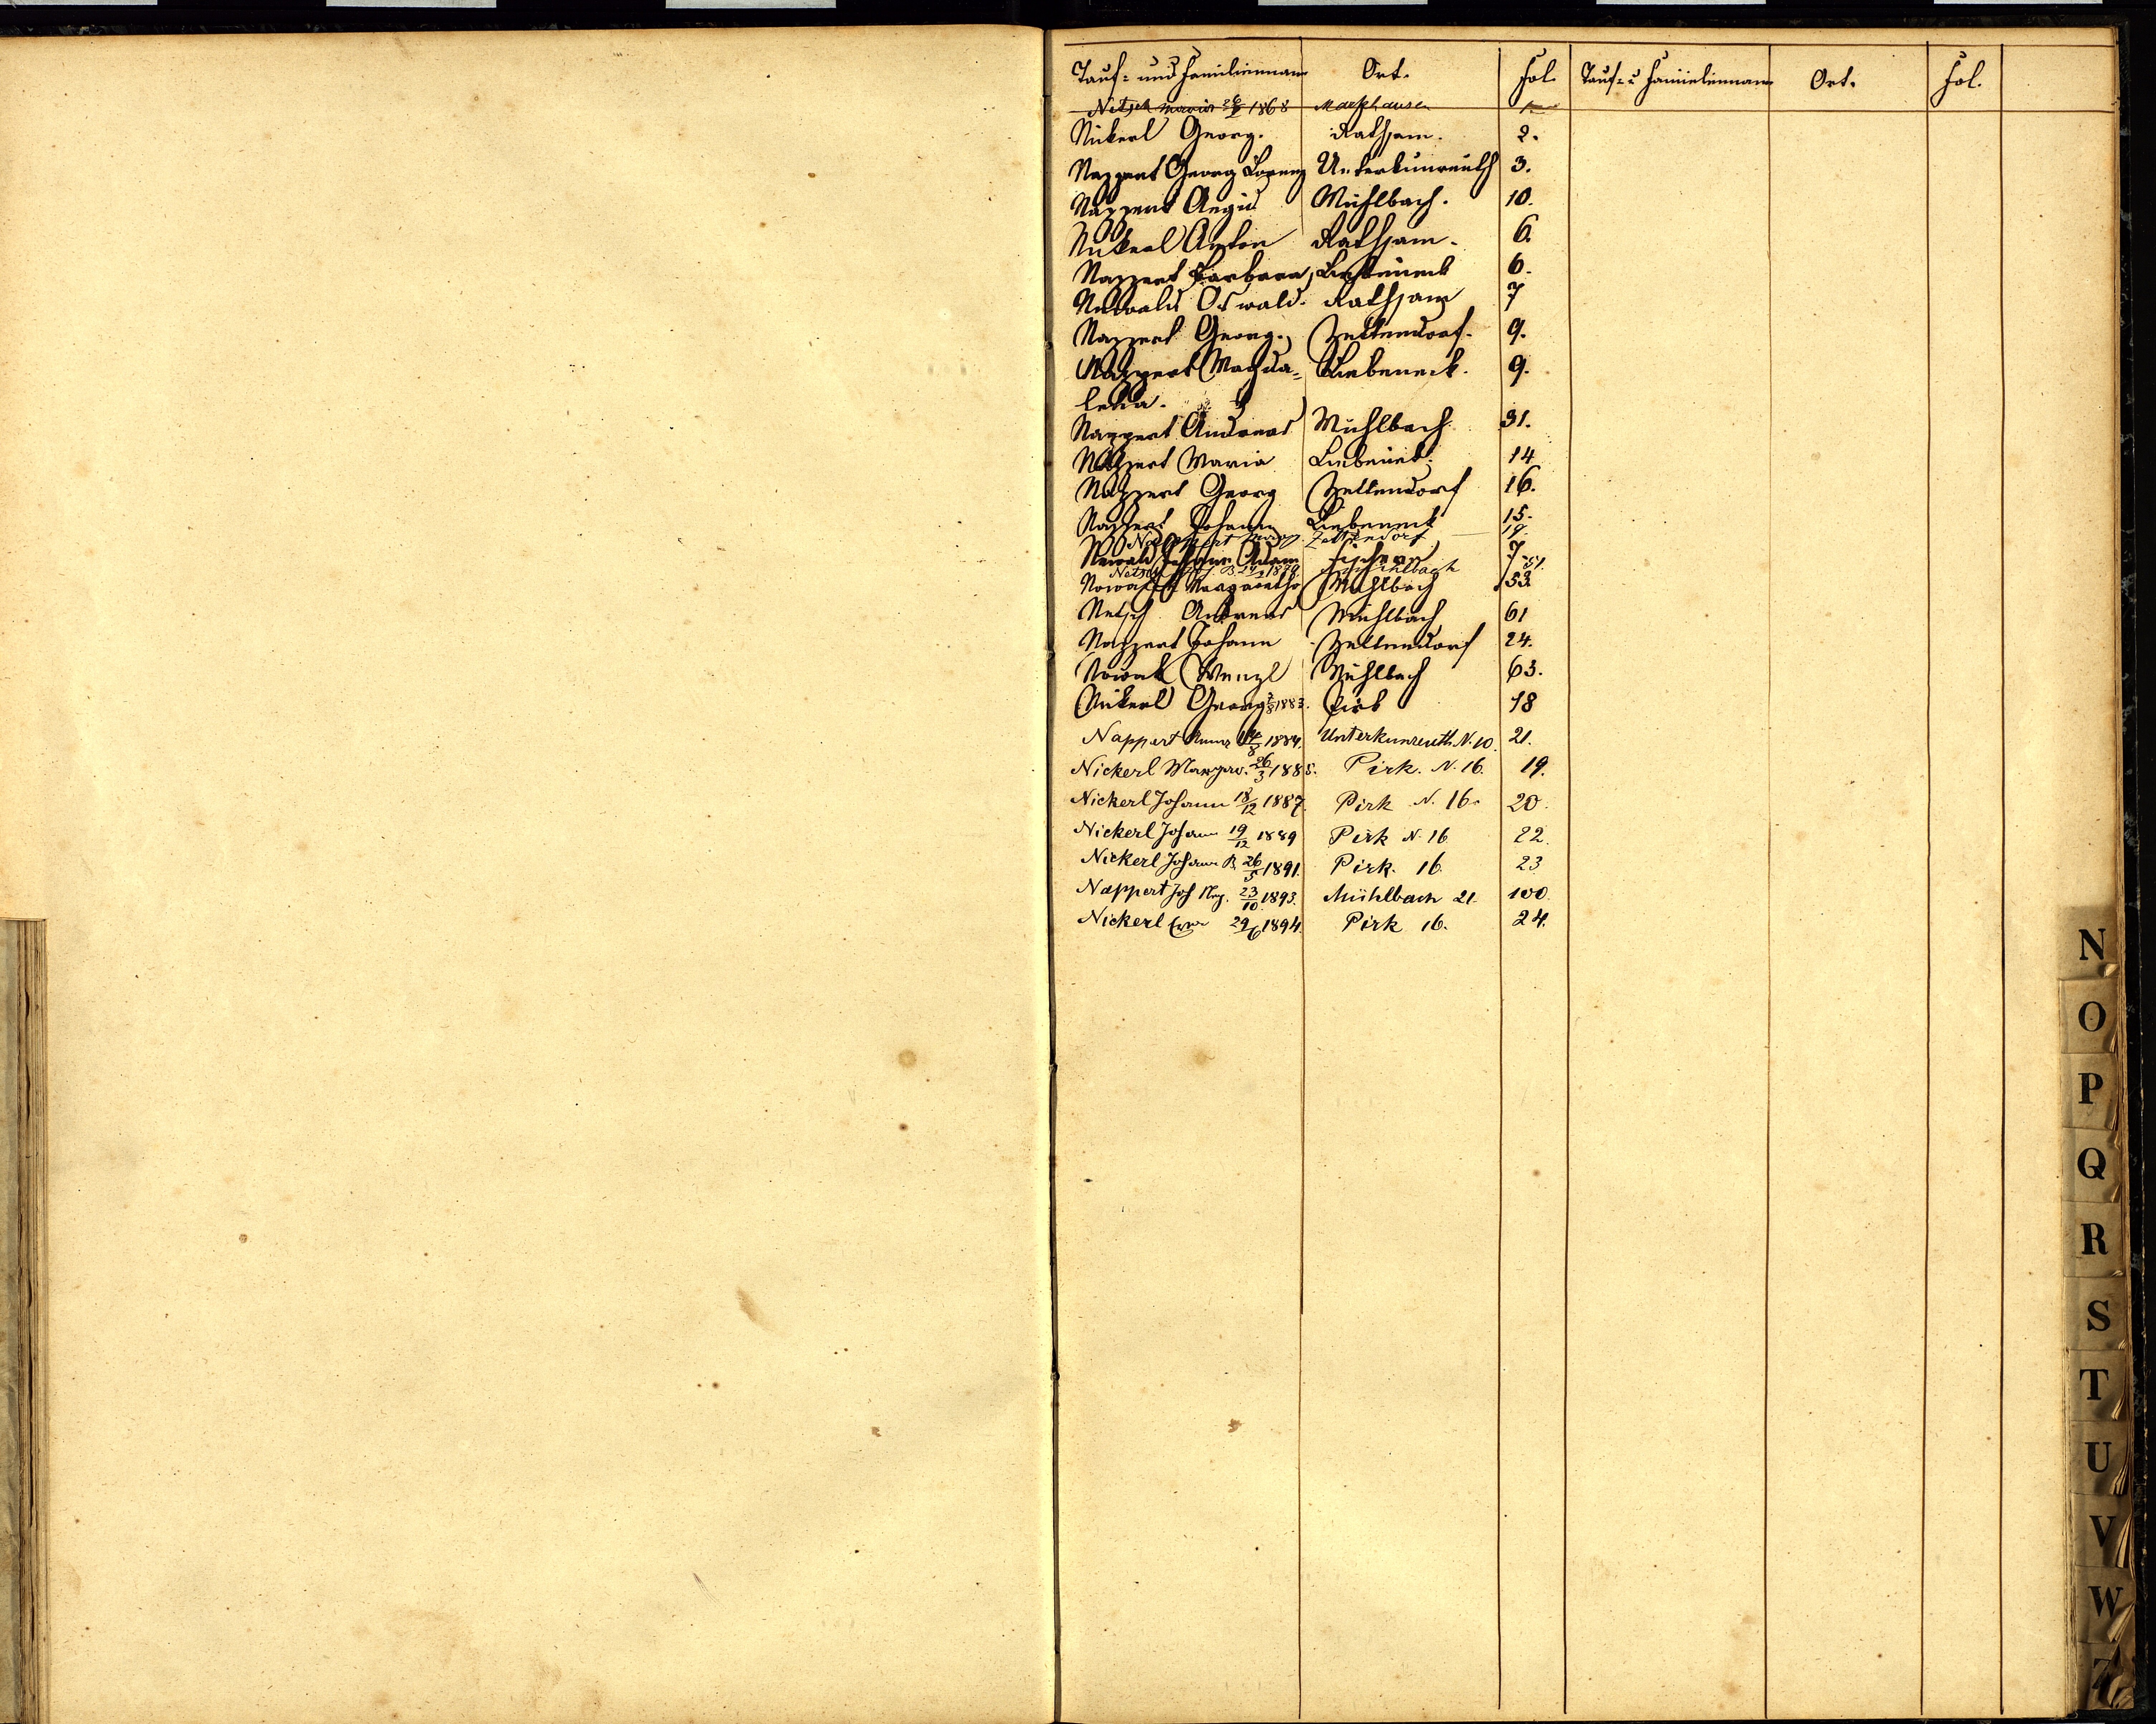 Tauf- und Familienname Ort. Fol. Tauf- u Familienname Ort. Fol.
Netsch Maria 1868 Markhausen
Nickerl Georg. Rathsam. 2.
Nappert Georg Lorenz Unterkunreuth 3.
Nappert Aegid Mühlbach. 10.
Nickerl Anton Rathsam. 6.
Nappert Barbara, Liebeneck 6.
Newald Oswald. Rathsam 7
Nappert Georg. Zettendorf. 9.
Nappert Magda- Liebeneck. 9.
lena.
Nappert Andreas Mühlbach 31.
Nappert Maria Liebeneck. 14
Nappert Georg Zettendorf 16.
Nappert Johann Liebeneck 15.
Nappert Zettendorf 19.
Newald Johann Adam Fischern 7
Netsch 1879 Mühlbach 51.
Nowak Margaretha Mühlbach 53.
Netsch Andreas Mühlbach 61
Nappert Johann Zettendorf 24.
Nowak Wenzl Mühlbach 63.
Nickerl Georg 7/8 1883. Pirk 18
Nappert Anna 1884. Unterkunreuth N. 10. 21.
Nickerl Margar. 26/3 1885. Pirk. N. 16. 19.
Nickerl Johann 18/12 1887. Pirk N. 16. 20.
Nickerl Johann 19/12 1889 Pirk N. 16 22.
Nickerl Johann B. 26/5 1891. Pirk. 16. 23
Nappert Jos 23/10 1893. Mühlbach 21. 100
Nickerl 29/6 1894. Pirk 16. 24.
N
O
P
Q
R
S
T
U
V
W
Z